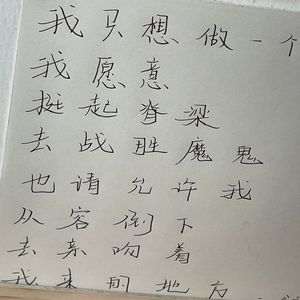 我只想做一个
我愿意
挺起脊梁
去战胜魔鬼
也请允许我
从容倒下
去亲吻着
我来的地方